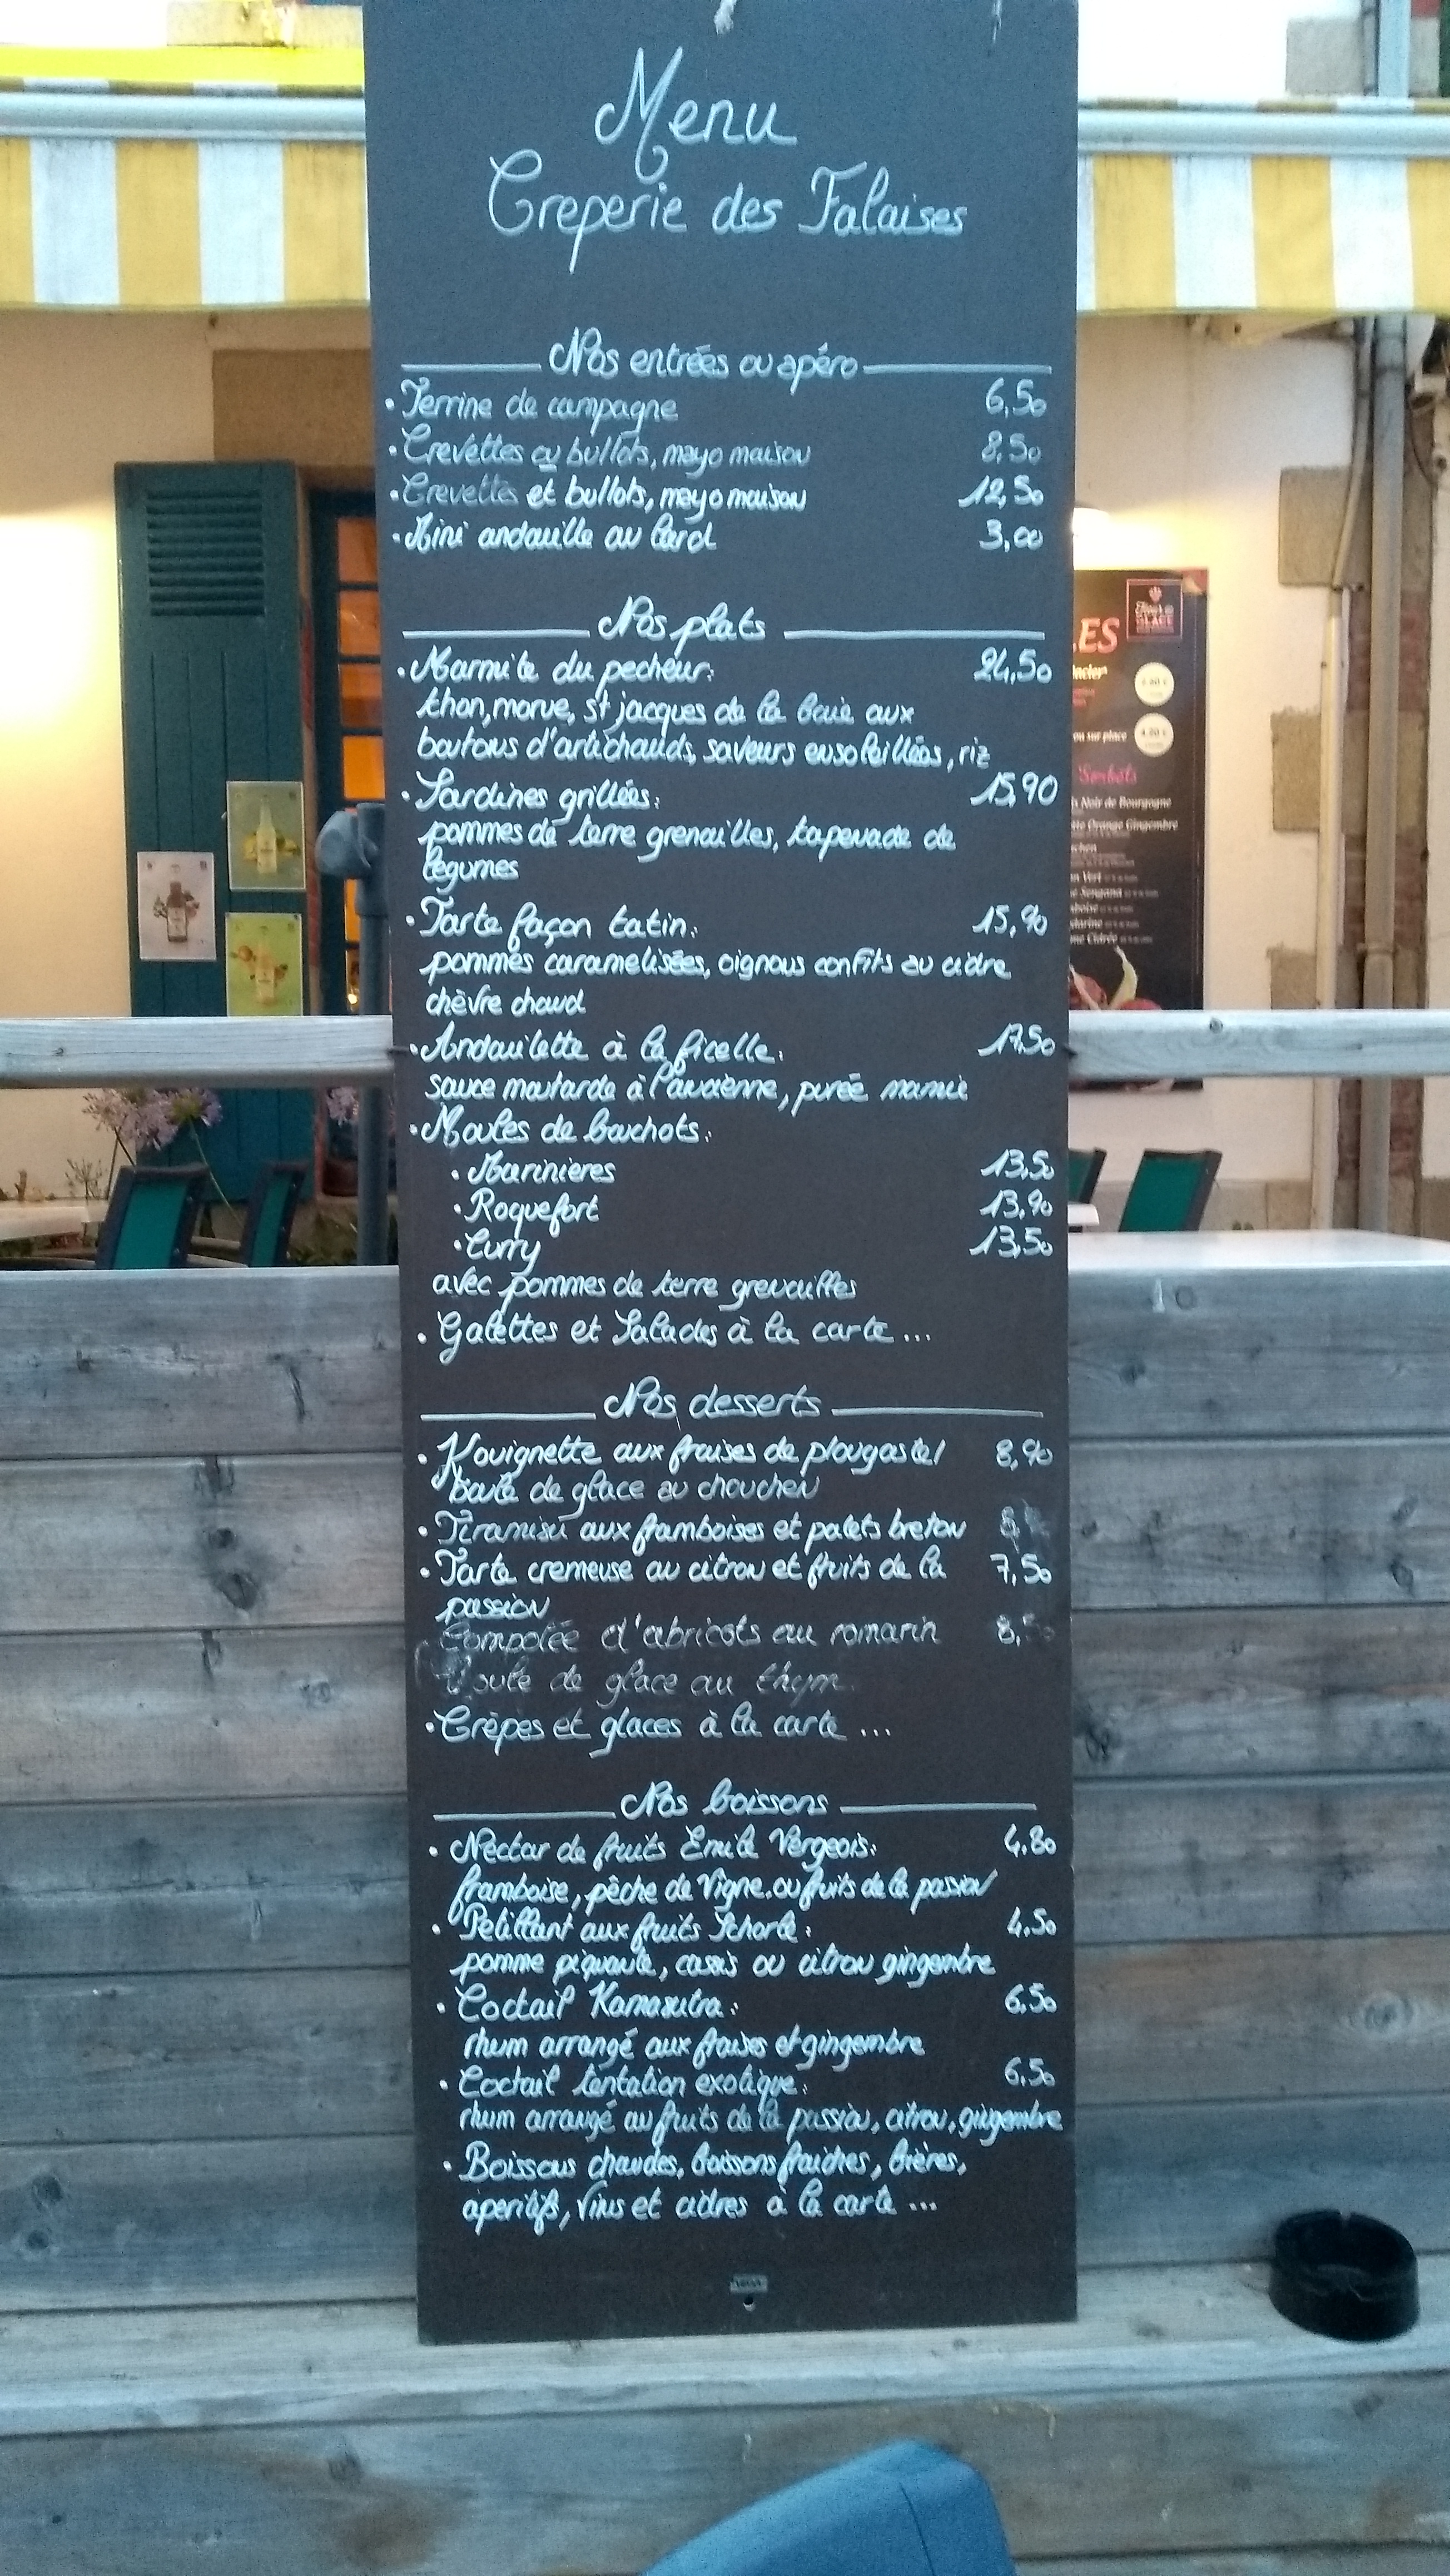 Menu
Creperie des Falaises
Nos entrées ou apéro
• Terrine de campagne 6,50
• Crevettes ou bullots, mayo maison 8,50
• Crevettes et bullots, mayo maison 12,50
• Mini andouille au lard 3,00
Nos plats
• Marmite du pecheur: 24,50
thon, morue, st jacques de la baie aux
boutons d'artichauds, saveurs ensoleillées, riz
• Sardines grillées: 15,90
pommes de terre grenailles, tapenade de
legumes
• Tarte façon tatin: 15,90
pommes caramelisées, oignons confits au cidre
chèvre chaud
• Andouilette à la ficelle: 17,50
sauce moutarde à l'ancienne, purée mamie
• Moules de bouchots:
• Marinieres 13,50
• Roquefort 13,90
• Curry 13,50
avec pommes de terre grenailles
• Galettes et Salades à la carte ...
Nos desserts
• Kouignette aux fraises de plougastel 8,90
boule de glace au chouchen
• Tiramisu aux framboises et palets breton
• Tarte cremeuse au citron et fruits de la 7,50
passion
Compotée d'abricots au romarin 8,50
Boule de glace au thym.
• Crèpes et glaces à la carte ...
Nos boissons
• Nectar de fruits Emile Vergeois: 4,80
framboise, pêche de Vigne, ou fruits de la passion
• Petillant aux fruits Schorle: 4,50
pomme piquante, cassis ou citron gingembre
• Coctail Kamasutra: 6,50
rhum arrangé aux fraises et gingembre
• Coctail tentation exotique: 6,50
rhum arrangé au fruits de la passion, citron, gingembre
• Boissons chaudes, boissons fraiches, bières,
aperitifs, vins et cidres à la carte ...
LES
GLACE
ou sur place
Sorbets
Noir de Bourgogne
Orange Gingembre
Vert